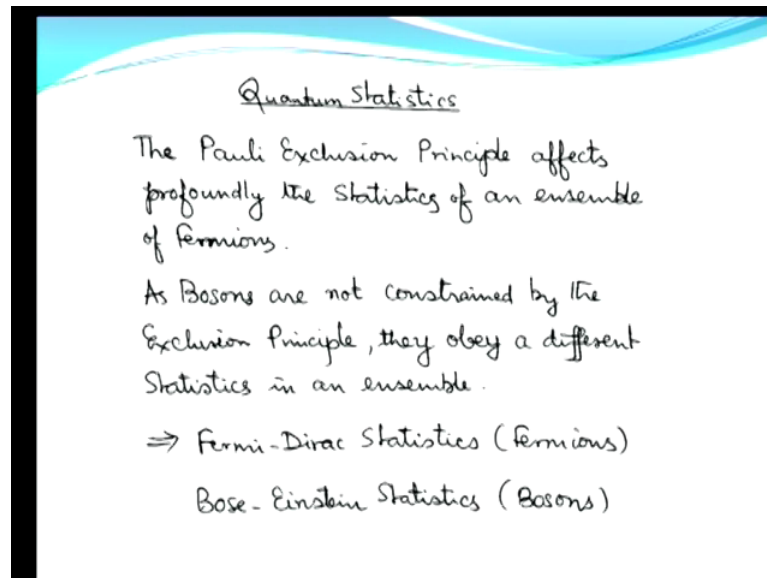 Quantum Statistics
The Pauli Exclusion Principle affects
profoundly the Statistics of an ensemble
of Fermions.
As Bosons are not constrained by the
Exclusion Principle, they obey a different
Statistics in an ensemble.
⇒ Fermi-Dirac Statistics (Fermions)
Bose-Einstein Statistics (Bosons)